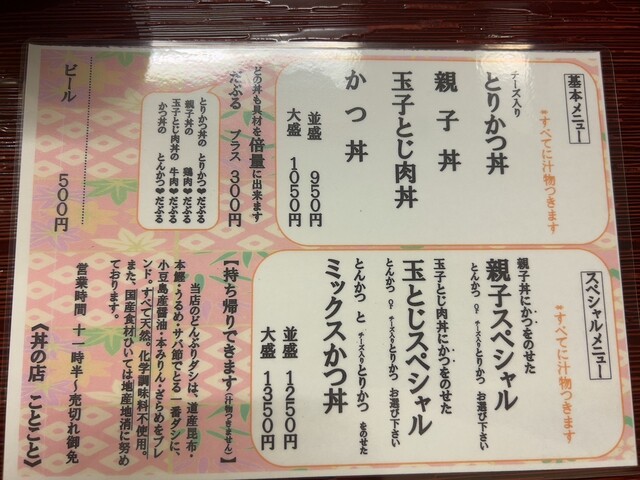 基本メニュー
*すべてに汁物つきます
チーズ入り
とりかつ丼
親子丼
玉子とじ肉丼
かつ丼
並盛 950円
大盛 1050円
どの丼も具材を倍量に出来ます
だぶる プラス 300円
とりかつ丼の とりかつ♥だぶる
親子丼の 鶏肉♥だぶる
玉子とじ肉丼の 牛肉♥だぶる
かつ丼の とんかつ♥だぶる
ビール 500円
スペシャルメニュー
*すべてに汁物つきます
親子丼にかつをのせた
親子スペシャル
とんかつ or チーズ入りとりかつ お選び下さい
玉子とじ肉丼にかつをのせた
玉とじスペシャル
とんかつ or チーズ入りとりかつ お選び下さい
とんかつ と チーズ入りとりかつ をのせた
ミックスかつ丼
並盛 1250円
大盛 1350円
【持ち帰りできます】(汁物つきません)
当店のどんぶりダシは、道産昆布・
本鰹・うるめ・サバ節でとる一番ダシに、
小豆島産醤油・本みりん・ざらめをブレ
ンド。すべて天然。化学調味料不使用。
また、国産食材ひいては地産地消に努め
ております。
営業時間 十一時半~売切れ御免
《丼の店 ことごと》